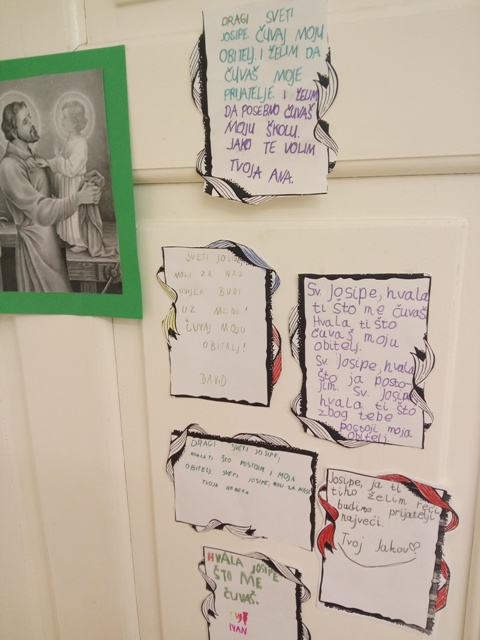 DRAGI SVETI
JOSIPE ČUVAJ MOJU
OBITELJ. I ŽELIM DA
ČUVAŠ MOJE
PRIJATELJE. I ŽELIM
DA POSEBNO ČUVAŠ
MOJU ŠKOLU.
JAKO TE VOLIM
TVOJA AVA.
SVETI JOSIPE,
MOLI ZA NAS
UVIJEK BUDI
UZ MENE!
ČUVAJ MOJU
OBITELJ!
DAVID
Sv. Josipe, hvala
ti što me čuvaš
Hvala ti što
čuvaš moju
obitelj.
Sv. Josipe, hvala
što ja posto-
jim. Sv. Josipe
hvala ti što
zbog tebe
postoji moja
obitelj
DRAGI SVETI JOSIPE,
HVALA TI ŠTO POSTOJIM I MOJA
OBITELJ. SVETI JOSIPE, MOLI ZA MENE
TVOJA
Josipe, ja ti
tiho želim reći
budimo prijatelji
najveći.
Tvoj Jakov
HVALA JOSIPE
ŠTO ME
ČUVAŠ.
TVOJ
IVAN